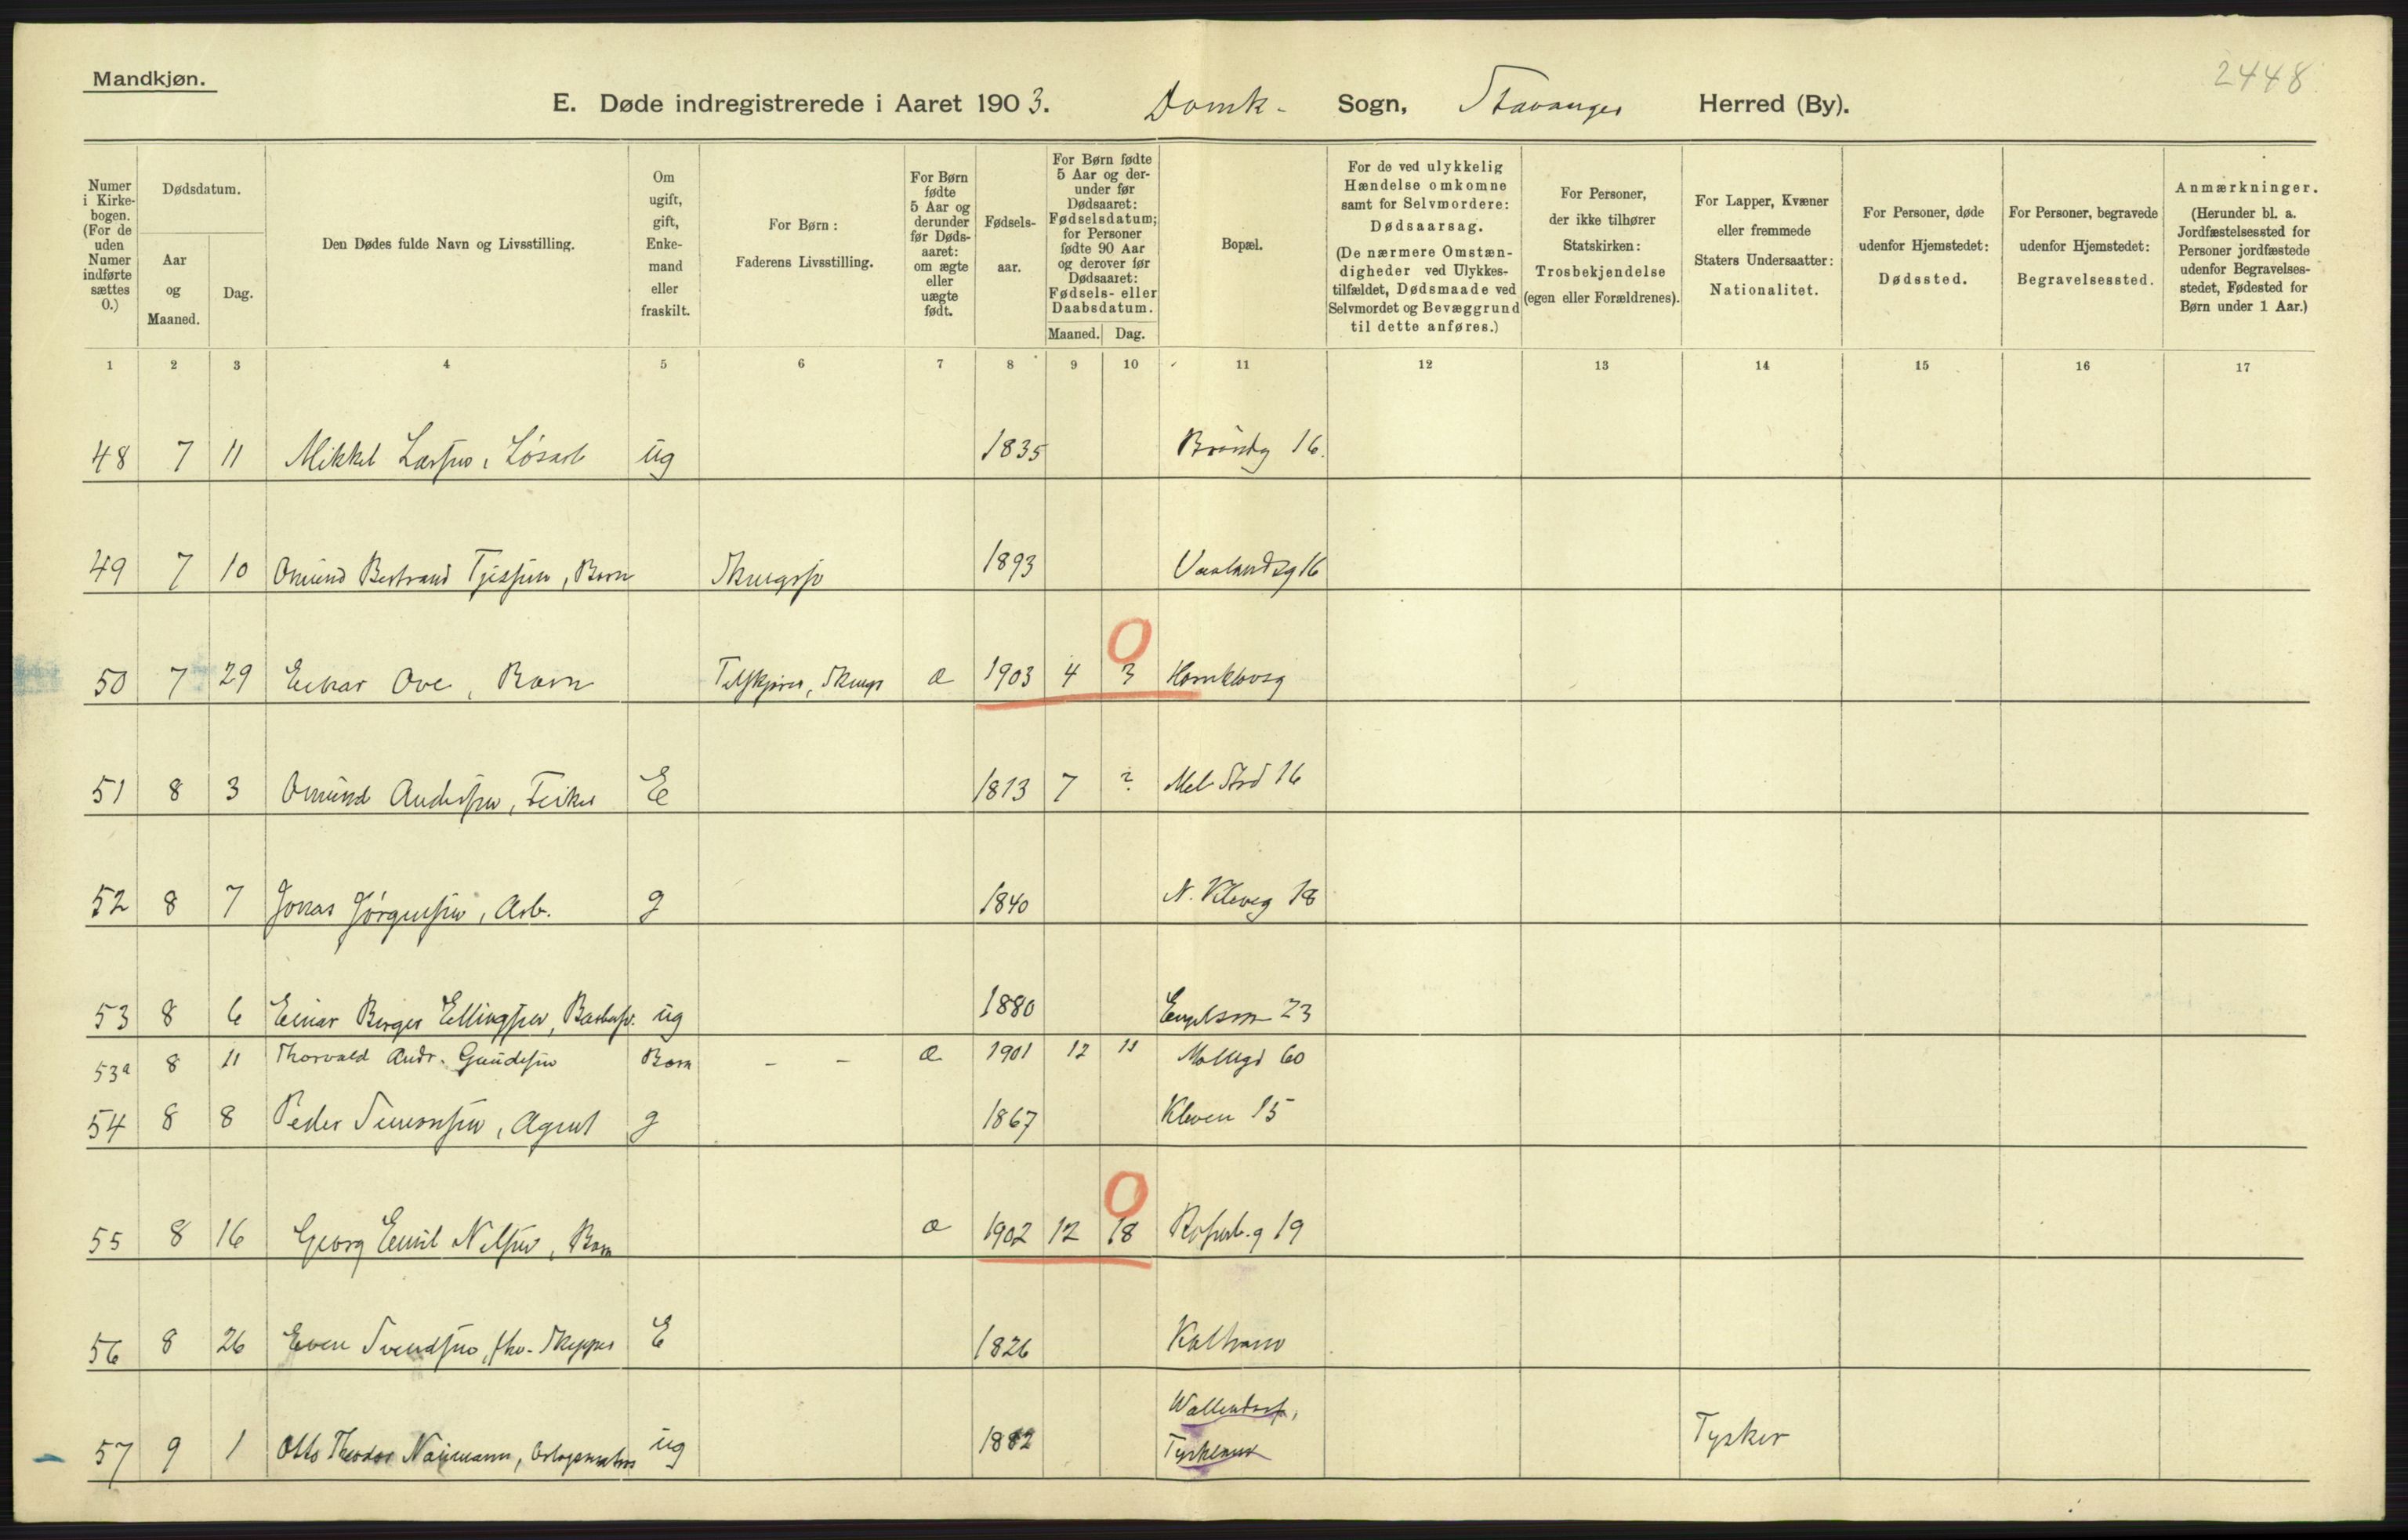 Mandkjøn.
2448
E. Døde indregistrerede i Aaret 1903. Domk- Sogn, Stavanger Herred (By).
Numer i Kirke-bogen. (For de uden Numer indførte sættes 0.)
Dødsdatum.
Aar og Maaned.
Dag.
Den Dødes fulde Navn og Livsstilling.
Om ugift, gift, Enke-mand eller fraskilt.
For Børn: Faderens Livsstilling.
For Børn fødte 5 Aar og derunder før Døds-aaret: om ægte eller uægte født.
Fødsels-aar.
For Børn fødte 5 Aar og der-under før Dødsaaret: Fødselsdatum; for Personer fødte 90 Aar og derover før Dødsaaret: Fødsels- eller Daabsdatum.
Maaned. Dag.
Bopæl.
For de ved ulykkelig Hændelse omkomne samt for Selvmordere: Dødsaarsag. (De nærmere Omstæn-digheder ved Ulykkes-tilfældet, Dødsmaade ved Selvmordet og Bevæggrund til dette anføres.)
For Personer, der ikke tilhører Statskirken: Trosbekjendelse (egen eller Forældrenes).
For Lapper, Kvæner eller fremmede Staters Undersaatter: Nationalitet.
For Personer, døde udenfor Hjemstedet: Dødssted.
For Personer, begravede udenfor Hjemstedet: Begravelsessted.
Anmærkninger. (Herunder bl. a. Jordfæstelsessted for Personer jordfæstede udenfor Begravelses-stedet, Fødested for Børn under 1 Aar.)
1 2 3 4 5 6 7 8 9 10 11 12 13 14 15 16 17
48 7 11 Mikkel Larsen, Løsarb ug 1835 16.
49 7 10 Omund Bertrand, Barn 1893 Vaalandsg 16
50 7 29 Einar Ove, Barn æ 1903 4 3 Hornklovsg
0
51 8 3 Omund Andersen, E 1813 7 ? 16
52 8 7 Jonas Jørgensen, Arb. g 1840 N. Kleveg 18
53 8 6 Einar Berger Ellingsen, ug 1880 23
53a 8 11 Thorvald Andr. Gundersen Barn - - æ 1901 12 11 60
54 8 8 Peder Simonsen, Agent g 1867 Kleven 15
55 8 16 Georg Emil Nilsen, Barn æ 1902 12 18 19
0
56 8 26 Even Svendsen, fhv. Skipper E 1826 Kalham
57 9 1 Otto Theodor Naumann, Orlogsmatros ug 1882 Wallendorf, Tyskland Tysker